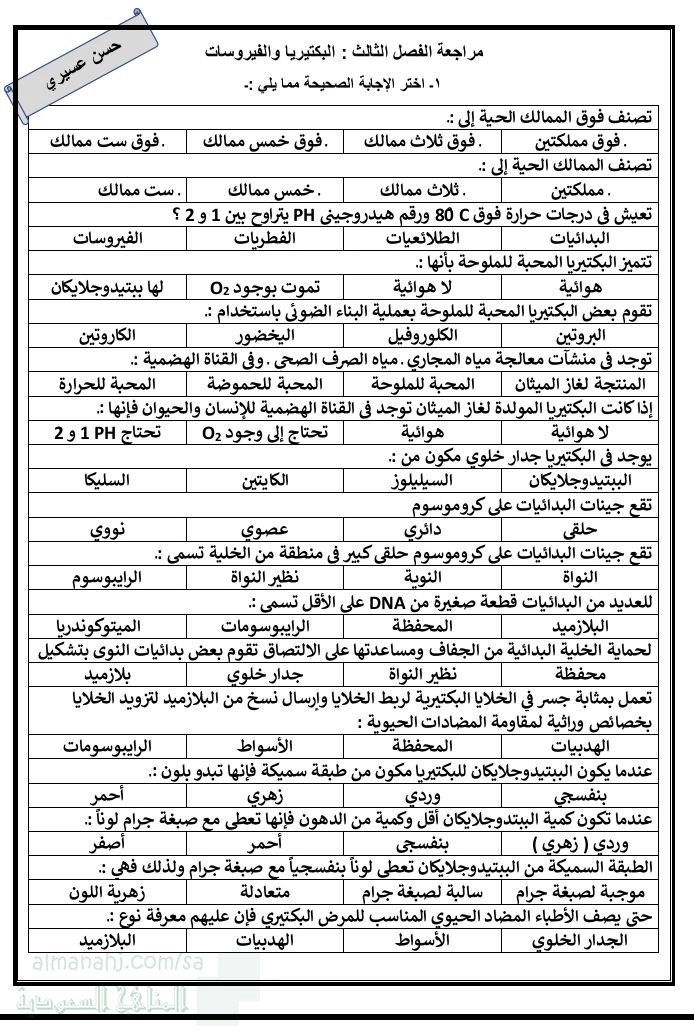 حسن عسيري
مراجعة الفصل الثالث : البكتيريا والفيروسات
١- اختر الإجابة الصحيحة مما يلي :-
تصنف فوق الممالك الحية إلى :.
. فوق مملكتين . فوق ثلاث ممالك . فوق خمس ممالك . فوق ست ممالك
تصنف الممالك الحية إلى :.
. مملكتين . ثلاث ممالك . خمس ممالك . ست ممالك
تعيش في درجات حرارة فوق 80 C ورقم هيدروجيني PH يتراوح بين 1 و 2 ؟
البدائيات الطلائعيات الفطريات الفيروسات
تتميز البكتيريا المحبة للملوحة بأنها :.
هوائية لا هوائية تموت بوجود O₂ لها ببتيدوجلايكان
تقوم بعض البكتيريا المحبة للملوحة بعملية البناء الضوئى باستخدام :.
البروتين الكلوروفيل اليخضور الكاروتين
توجد فى منشآت معالجة مياه المجاري . مياه الصرف الصحى . وفى القناة الهضمية :.
المنتجة لغاز الميثان المحبة للملوحة المحبة للحموضة المحبة للحرارة
إذا كانت البكتيريا المولدة لغاز الميثان توجد فى القناة الهضمية للإنسان والحيوان فإنها :.
لا هوائية هوائية تحتاج إلى وجود O₂ تحتاج PH 1 و 2
يوجد فى البكتيريا جدار خلوي مكون من :.
الببتيدوجلايكان السيليلوز الكايتين السليكا
تقع جينات البدائيات على كروموسوم
حلقى دائري عصوي نووي
تقع جينات البدائيات على كروموسوم حلقى كبير فى منطقة من الخلية تسمى :.
النواة النوية نظير النواة الرايبوسوم
للعديد من البدائيات قطعة صغيرة من DNA على الأقل تسمى :.
البلازميد المحفظة الرايبوسومات الميتوكوندريا
لحماية الخلية البدائية من الجفاف ومساعدتها على الالتصاق تقوم بعض بدائيات النوى بتشكيل
محفظة نظير النواة جدار خلوي بلازميد
تعمل بمثابة جسر في الخلايا البكتيرية لربط الخلايا وإرسال نسخ من البلازميد لتزويد الخلايا
بخصائص وراثية لمقاومة المضادات الحيوية :
الهدبيات المحفظة الأسواط الرايبوسومات
عندما يكون الببتيدوجلايكان للبكتيريا مكون من طبقة سميكة فإنها تبدو بلون :.
بنفسجي وردي زهري أحمر
عندما تكون كمية الببتدوجلايكان أقل وكمية من الدهون فإنها تعطى مع صبغة جرام لوناً :.
وردي ( زهري ) بنفسجى أحمر أصفر
الطبقة السميكة من الببتيدوجلايكان تعطى لوناً بنفسجياً مع صبغة جرام ولذلك فهي :.
موجبة لصبغة جرام سالبة لصبغة جرام متعادلة زهرية اللون
حتى يصف الأطباء المضاد الحيوي المناسب للمرض البكتيري فإن عليهم معرفة نوع :.
الجدار الخلوي الأسواط الهدبيات البلازميد
almanahj.com/sa
المناهج السعودية